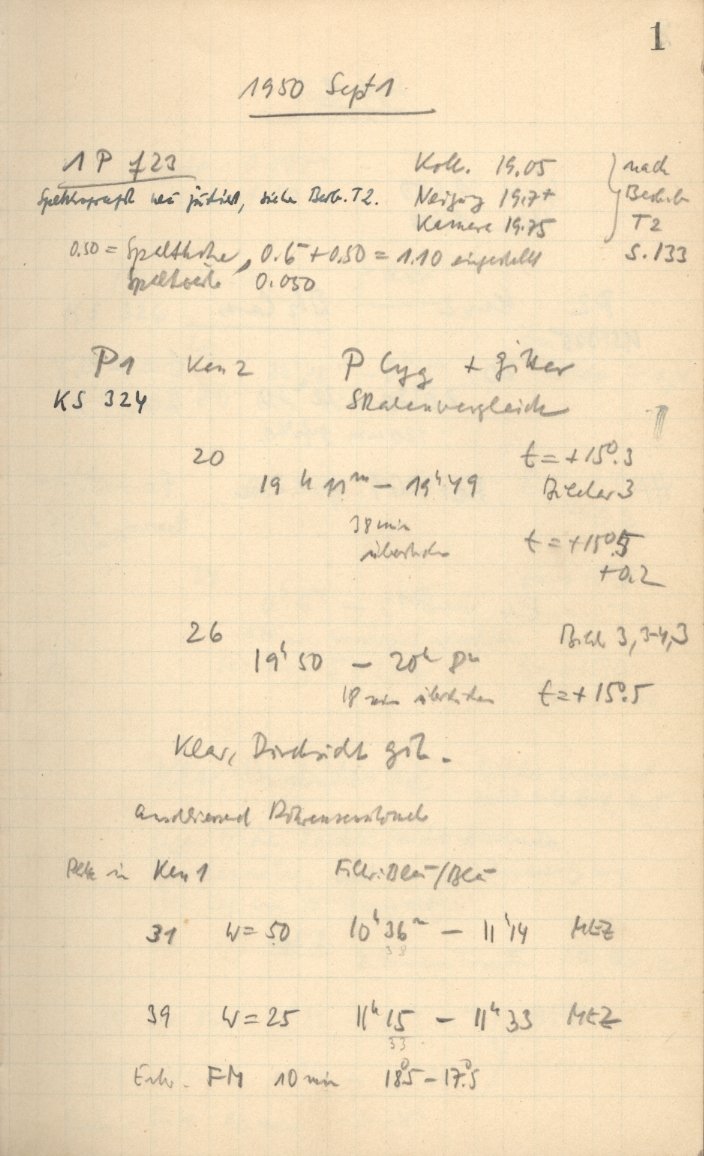 1
1950 Sept 1
1 P f23
Koll. 19.05
nach
Spektrograph neu justiert, siehe Beob. T2.
Neigung 19.7+
Beob.b
Kamera 19.75
T2
0.50 = Spalthöhe, 0.6 + 0.50 = 1.10 eingestellt
S. 133
Spaltweite 0.050
P1 Kam 2 P Cyg + Gitter
KS 324 Skalenvergleich
20 t = +15°.3
19 h 11m – 19h 49 Bilder 3
38 min
t = +15°.5
+0.2
26 Bild 3, 3-4, 3
19h 50 – 20h 8m
18 min t = +15°.5
Klar, Durchsicht gut.
anschliessend
Platte in Kam 1 Filter: Blau/Blau
31 W = 50 10h 36m – 11h 14 MEZ
38
39 W = 25 11h 15 – 11h 33 MEZ
53
Entw. FM 10 min 18°.5 – 17°.5